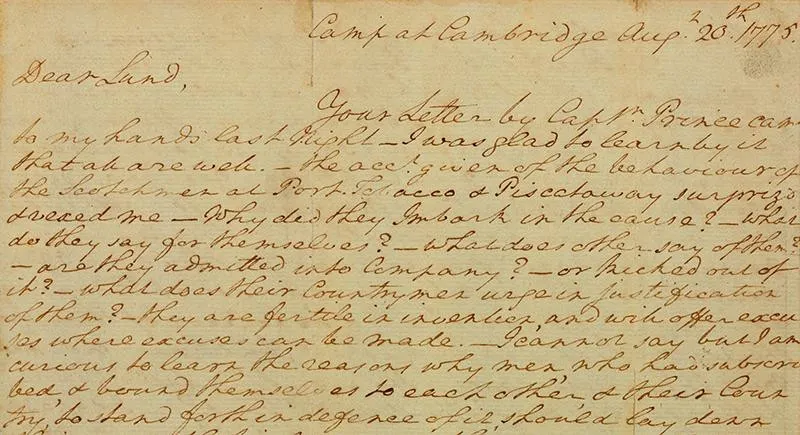 Camp at Cambridge Augt 20th 1775.
Dear Lund,
Your Letter by Captn. Prince came
to my hands last Night – I was glad to learn by it
that all are well. – the acct. given of the behaviour of
the Scotchmen at Port Tobacco & Piscataway surprizd
& vexed me – Why did they Imbark in the cause? – what
do they say for themselves? – what does other say of them?
– are they admitted into Company? – or kicked out of
it? – what does their Countrymen urge in justification
of them? – they are fertile in invention, and will offer excu
ses where excuses can be made. – I cannot say but I am
curious to learn the reasons why men, who had subscri
bed, & bound themselves to each other, & their Coun
try, to stand forth in defence of it, should lay down